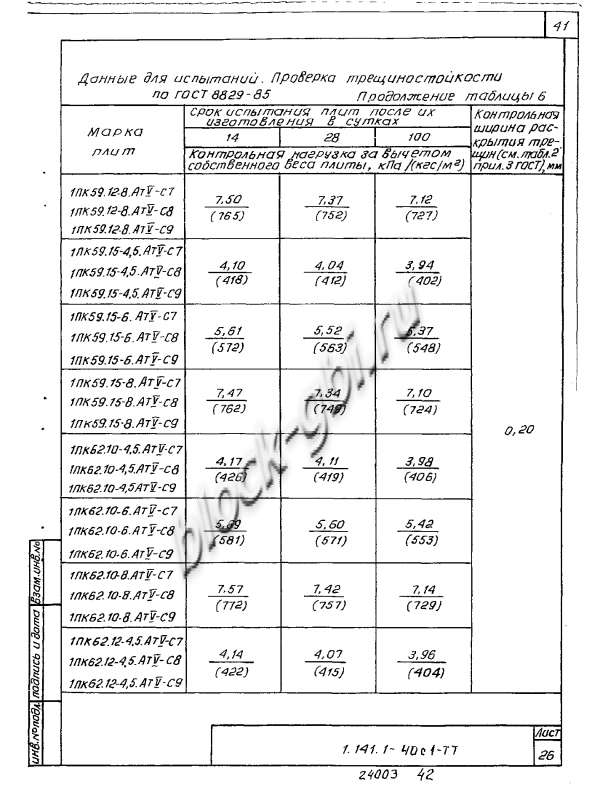 41
Данные для испытаний. Проверка трещиностойкости
по ГОСТ 8829-85 Продолжение таблицы 6
Марка плит
Срок испытания плит после их
изготовления в сутках
14 28 100
Контрольная нагрузка за вычетом
собственного веса плиты, кПа/(кгс/м²)
Контрольная
ширина рас-
крытия тре-
щин (см. табл. 2
прил. 3 ГОСТ), мм
1ПК59.12-8.АтV-С7
1ПК59.12-8.АтV-С8
1ПК59.12-8.АтV-С9
7,50 7,37 7,12
(765) (752) (727)
1ПК59.15-4,5.АтV-С7
1ПК59.15-4,5.АтV-С8
1ПК59.15-4,5.АтV-С9
4,10 4,04 3,94
(418) (412) (402)
1ПК59.15-6.АтV-С7
1ПК59.15-6.АтV-С8
1ПК59.15-6.АтV-С9
5,61 5,52 5,37
(572) (563) (548)
1ПК59.15-8.АтV-С7
1ПК59.15-8.АтV-С8
1ПК59.15-8.АтV-С9
7,47 7,34 7,10
(762) (749) (724)
0,20
1ПК62.10-4,5.АтV-С7
1ПК62.10-4,5.АтV-С8
1ПК62.10-4,5АтV-С9
4,17 4,11 3,98
(426) (419) (406)
1ПК62.10-6.АтV-С7
1ПК62.10-6.АтV-С8
1ПК62.10-6.АтV-С9
5,69 5,60 5,42
(581) (571) (553)
1ПК62.10-8.АтV-С7
1ПК62.10-8.АтV-С8
1ПК62.10-8.АтV-С9
7,57 7,42 7,14
(772) (757) (729)
1ПК62.12-4,5.АтV-С7
1ПК62.12-4,5.АтV-С8
1ПК62.12-4,5.АтV-С9
4,14 4,07 3,96
(422) (415) (404)
block-gbi.ru
Взам.инв.№
Подпись и дата
Инв.№подл.
1.141.1-40с1-ТТ
Лист
26
24003 42